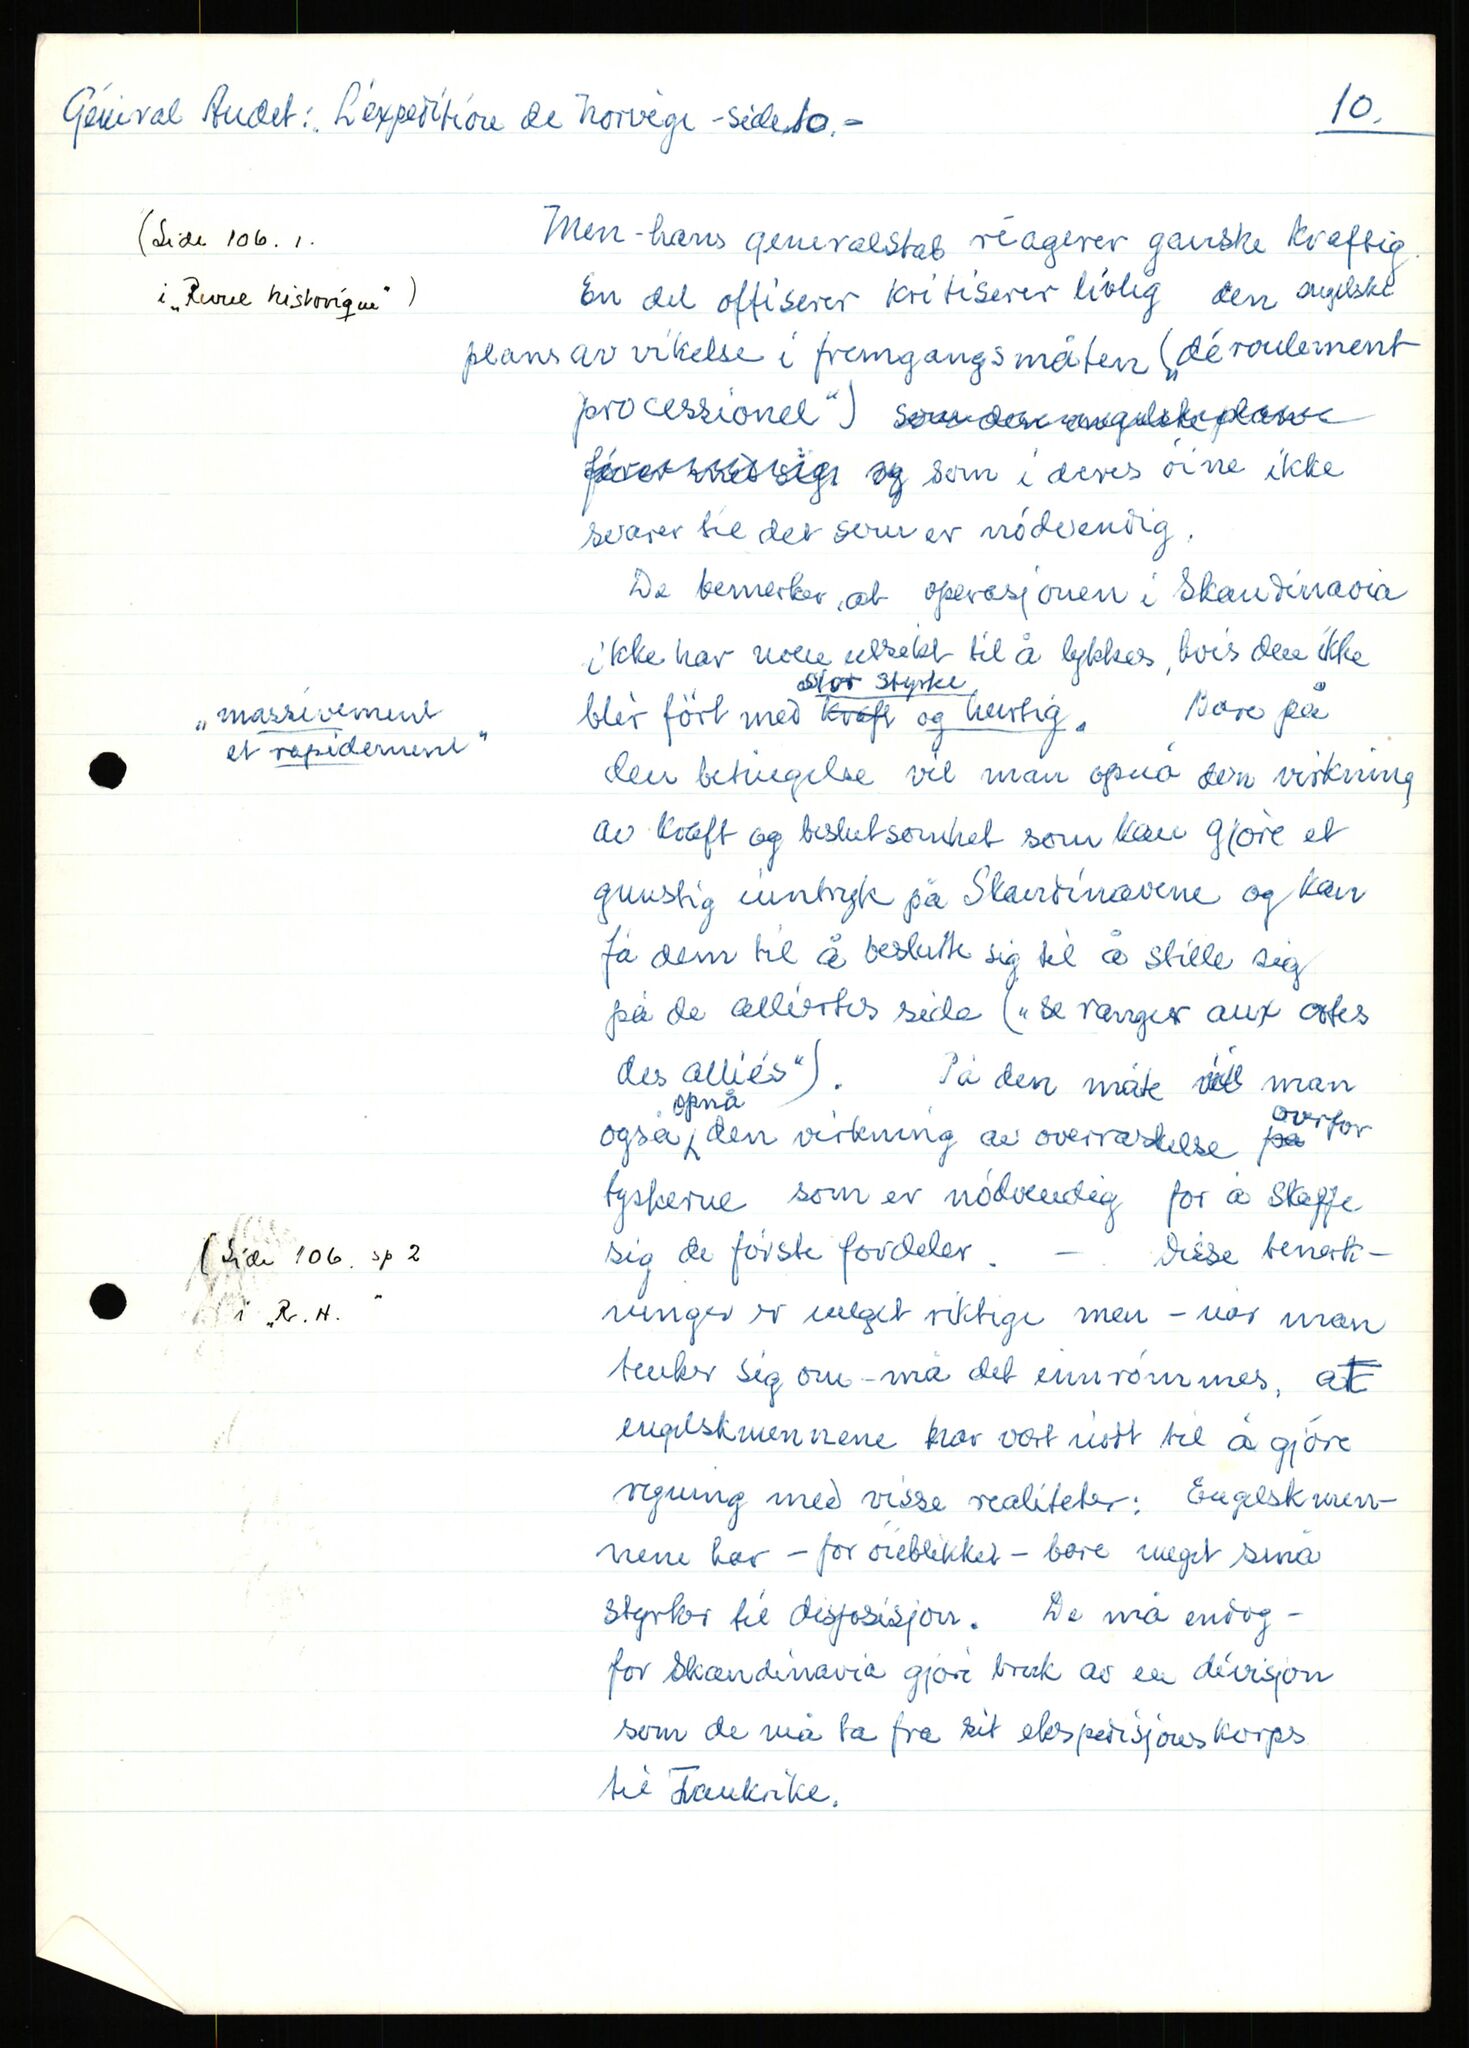 Général Audet: L'expédition de Norvège - side 10. -
10.
(Side 106. 1.
i „Revue historique")
Men - hans generalstab reagerer ganske kraftig.
En del offiserer kritiserer livlig den engelske
plans avvikelse i fremgangsmåten („déroulement
processionel") som den engelske plan
fører med sig og som i deres öine ikke
svarer til det som er nödvendig.
De bemerker, at operasjonen i Skandinavia
ikke har noen utsikt til å lykkes, hvis den ikke
stor styrke
blir fört med kraft og hurtig. Bare på
„massivement
et rapidement"
den betingelse vil man opnå den virkning
av kraft og beslutsomhet som kan gjöre et
gunstig inntryk på Skandinavene og kan
få dem til å beslutte sig til å stille sig
på de alliertes side („se ranger aux cotes
des alliés"). På den måte vil man
opnå
også den virkning av overraskelse på
overfor
tyskerne som er nödvendig for å skaffe
sig de förste fordeler. - Disse bemerk-
(Side 106. sp 2
i „R. H."
ninger er meget riktige men - når man
tenker sig om - må det innrömmes, at
engelskmennene har vært nödt til å gjöre
regning med visse realiteter: Engelskmen-
nene har - for öieblikket - bare meget små
styrker til disposisjon. De må endog -
for Skandinavia gjöre bruk av en divisjon
som de må ta fra sit ekspedisjonskorps
til Frankrike.